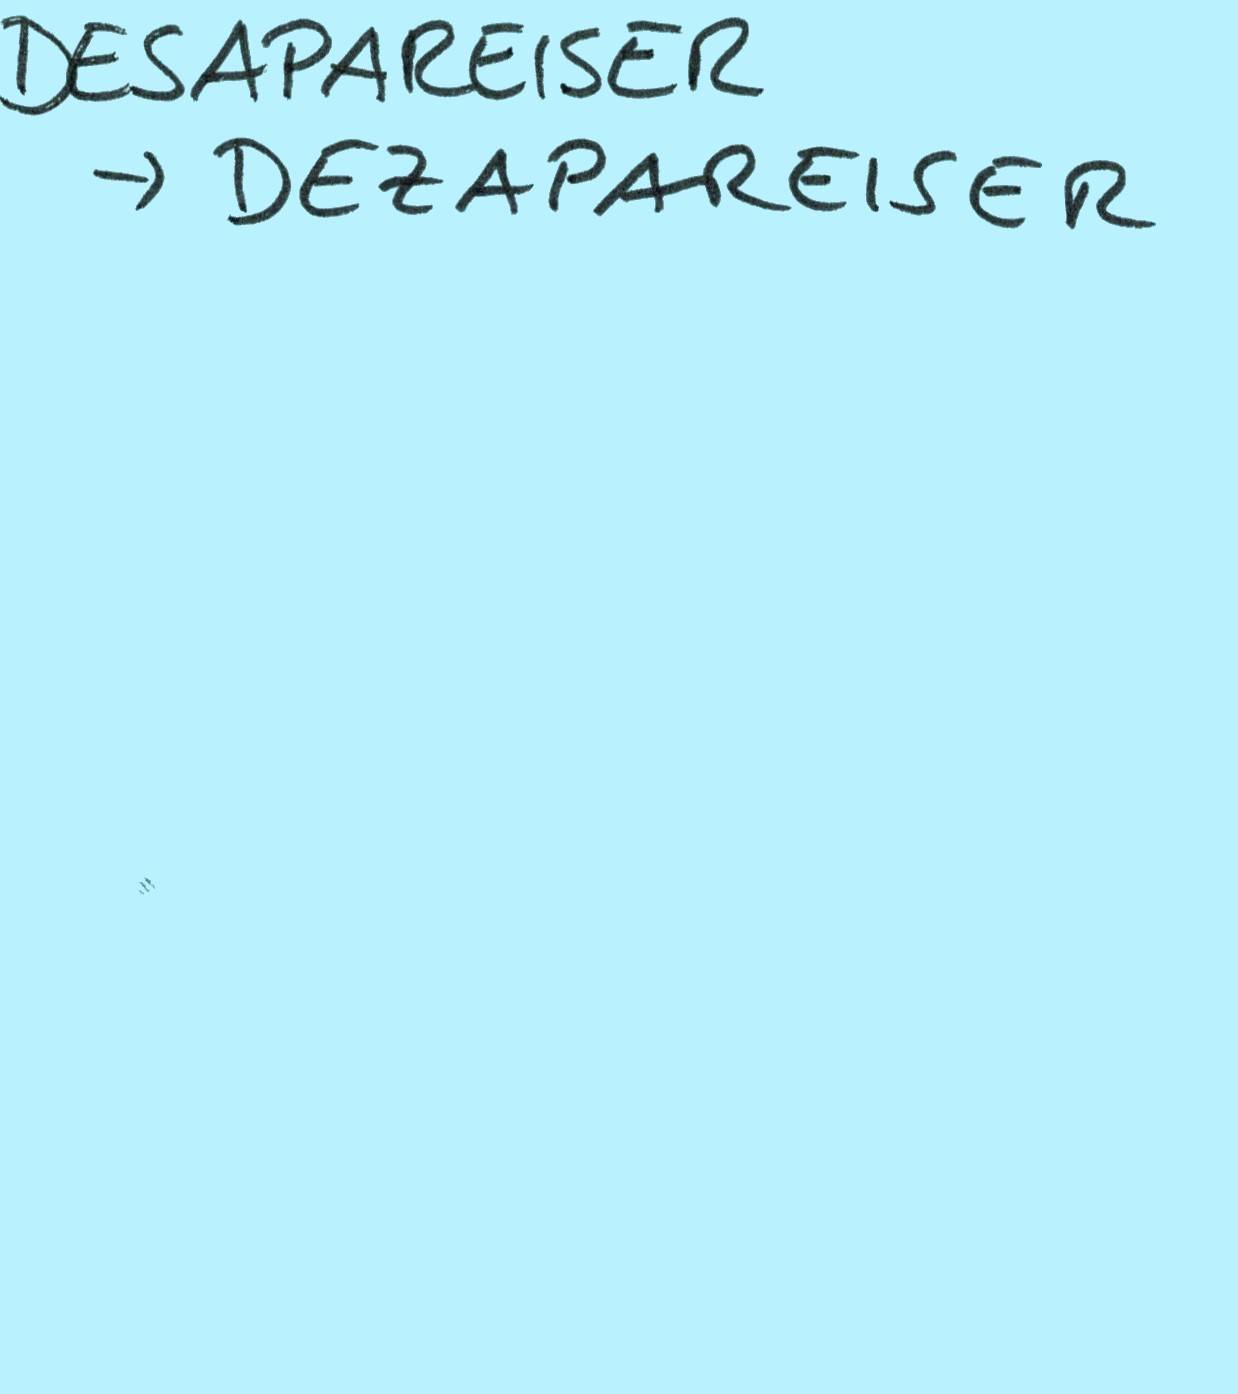 DESAPAREISER
→ DEZAPAREISER